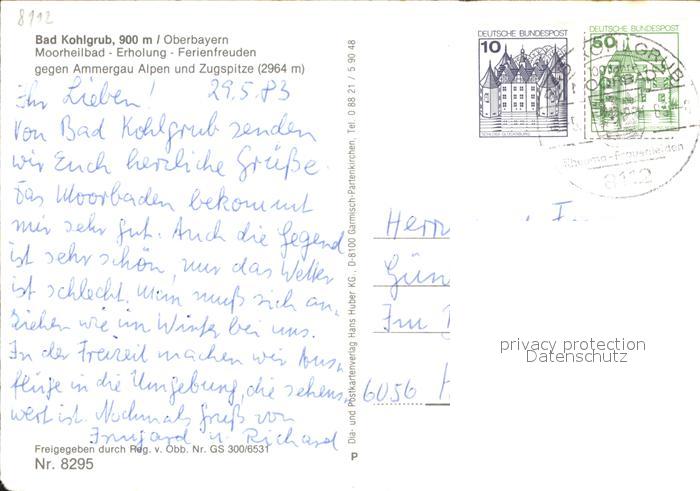 8112
Bad Kohlgrub, 900 m / Oberbayern
Moorheilbad - Erholung - Ferienfreuden
gegen Ammergau Alpen und Zugspitze (2964 m)
Ihr Lieben! 29.5.83
Von Bad Kohlgrub senden
wir Euch herzliche Grüße.
Das Moorbaden bekommt
mir sehr gut. Auch die Gegend
ist sehr schön, nur das Wetter
ist schlecht. Man muß sich an-
ziehen wie im Winter bei uns.
In der Freizeit machen wir Aus-
flüge in die Umgebung, die sehens-
wert ist. Nochmals Gruß von
Irmgard u. Richard
Freigegeben durch Reg. v. Obb. Nr. GS 300/6531
Nr. 8295
Dia- und Postkartenverlag Hans Huber KG., D-8100 Garmisch-Partenkirchen, Tel. 0 88 21 / 5 90 48
P
DEUTSCHE BUNDESPOST
10
SCHLOSS GLÜCKSBURG
DEUTSCHE BUNDESPOST
50
8112
Herrn
Gün
Im
6056
privacy protection
Datenschutz